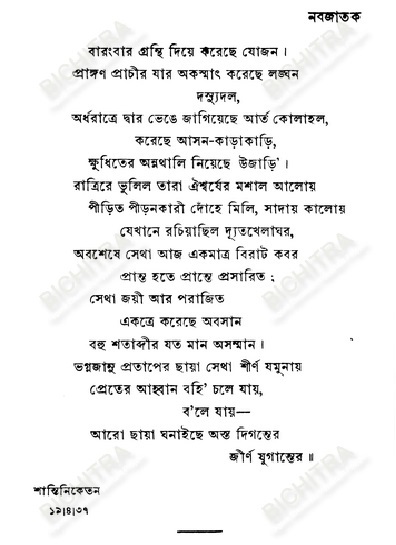 নবজাতক
বারংবার গ্রন্থি দিয়ে করেছে যোজন।
প্রাঙ্গণ প্রাচীর যার অকস্মাৎ করেছে লঙ্ঘন
দস্যুদল,
অর্ধরাত্রে দ্বার ভেঙে জাগিয়েছে আর্ত কোলাহল,
করেছে আসন-কাড়াকাড়ি,
ক্ষুধিতের অন্নথালি নিয়েছে উজাড়ি’।
রাত্রিরে ভুলিল তারা ঐশ্বর্যের মশাল আলোয়
পীড়িত পীড়নকারী দোঁহে মিলি, সাদায় কালোয়
যেখানে রচিয়াছিল দ্যূতখেলাঘর,
অবশেষে সেথা আজ একমাত্র বিরাট কবর
প্রান্ত হতে প্রান্তে প্রসারিত;
সেথা জয়ী আর পরাজিত
একত্রে করেছে অবসান
বহু শতাব্দীর যত মান অসম্মান।
ভগ্নজানু প্রতাপের ছায়া সেথা শীর্ণ যমুনায়
প্রেতের আহ্বান বহি’ চলে যায়,
ব’লে যায়—
আরো ছায়া ঘনাইছে অস্ত দিগন্তের
জীর্ণ যুগান্তের॥
শান্তিনিকেতন
১৯।৪।৩৭
BICHITRA
BICHITRA
BICHITRA
BICHITRA
BICHITRA
BICHITRA